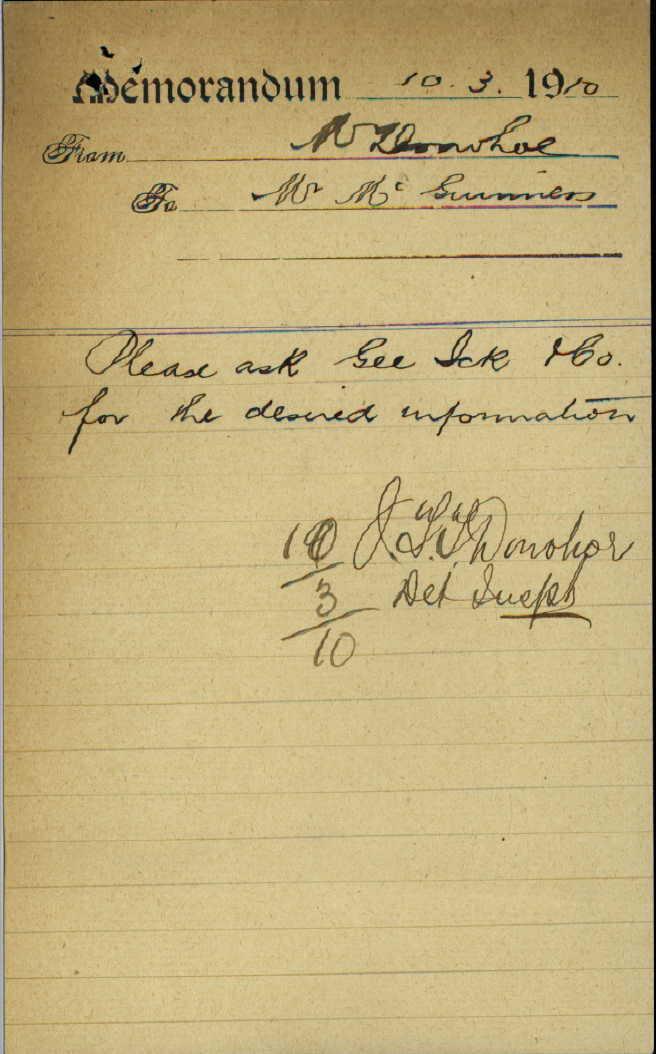 Memorandum 10. 3. 1910
From Mr Donohoe
To Mr McGuinness
Please ask Gee Ick & Co.
for the desired information
J. Donohoe
Det Inspr
10/3/10